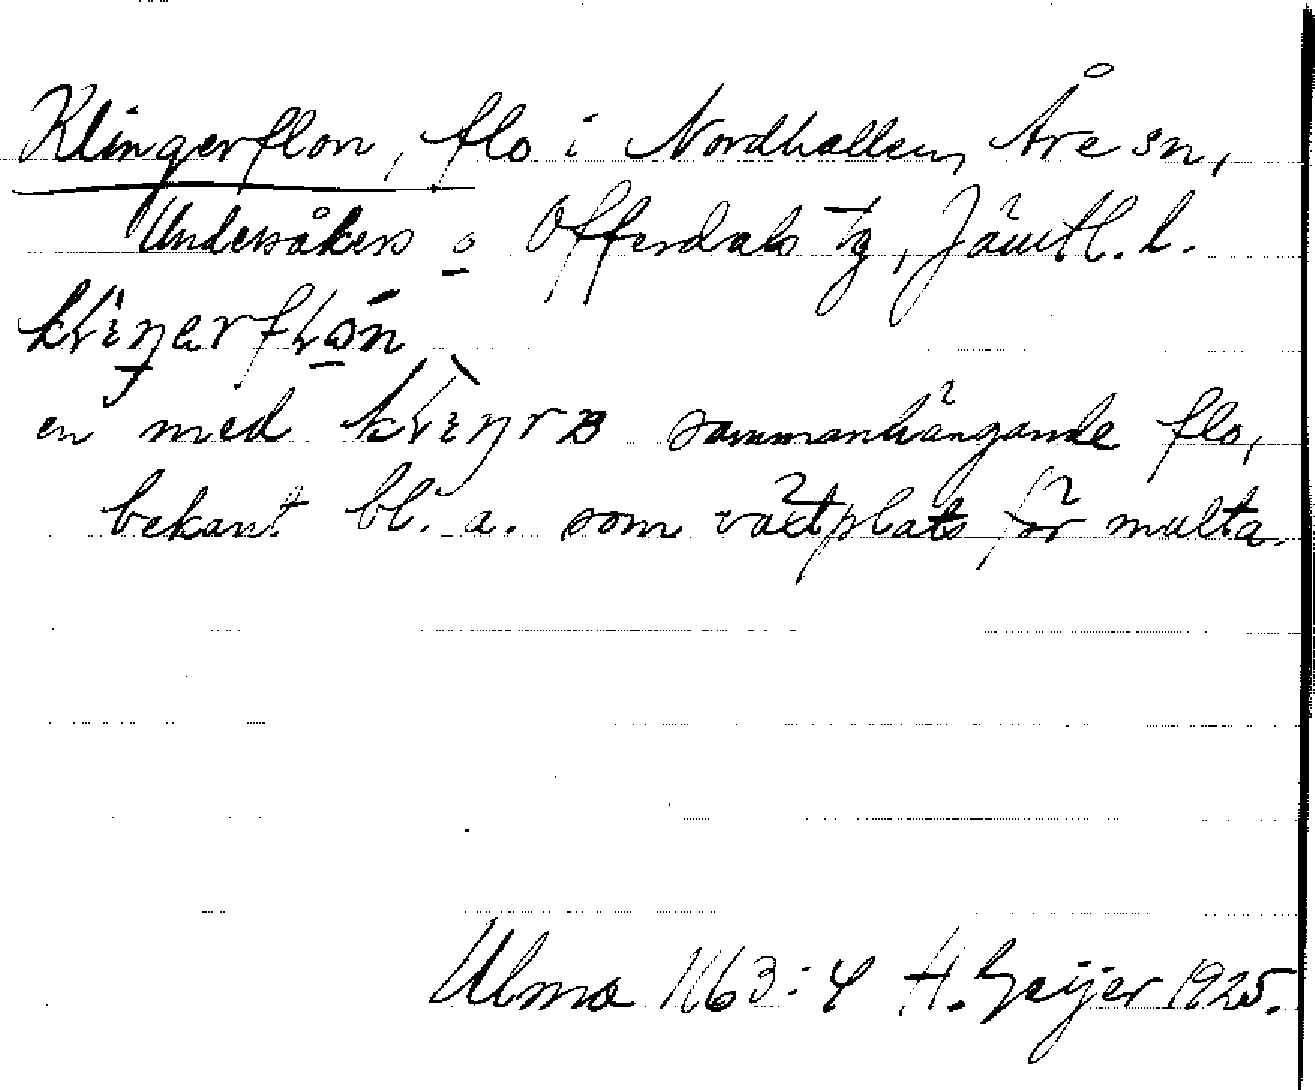 Klingerflon, flo i Nordhallen, Åre sn,
Undersåkers o Offerdals tg, Jämtl. l.
en med sammanhängande flo,
bekant bl. a. som växtplats för multa.
Ulma 1163:4 H. Geijer 1925.